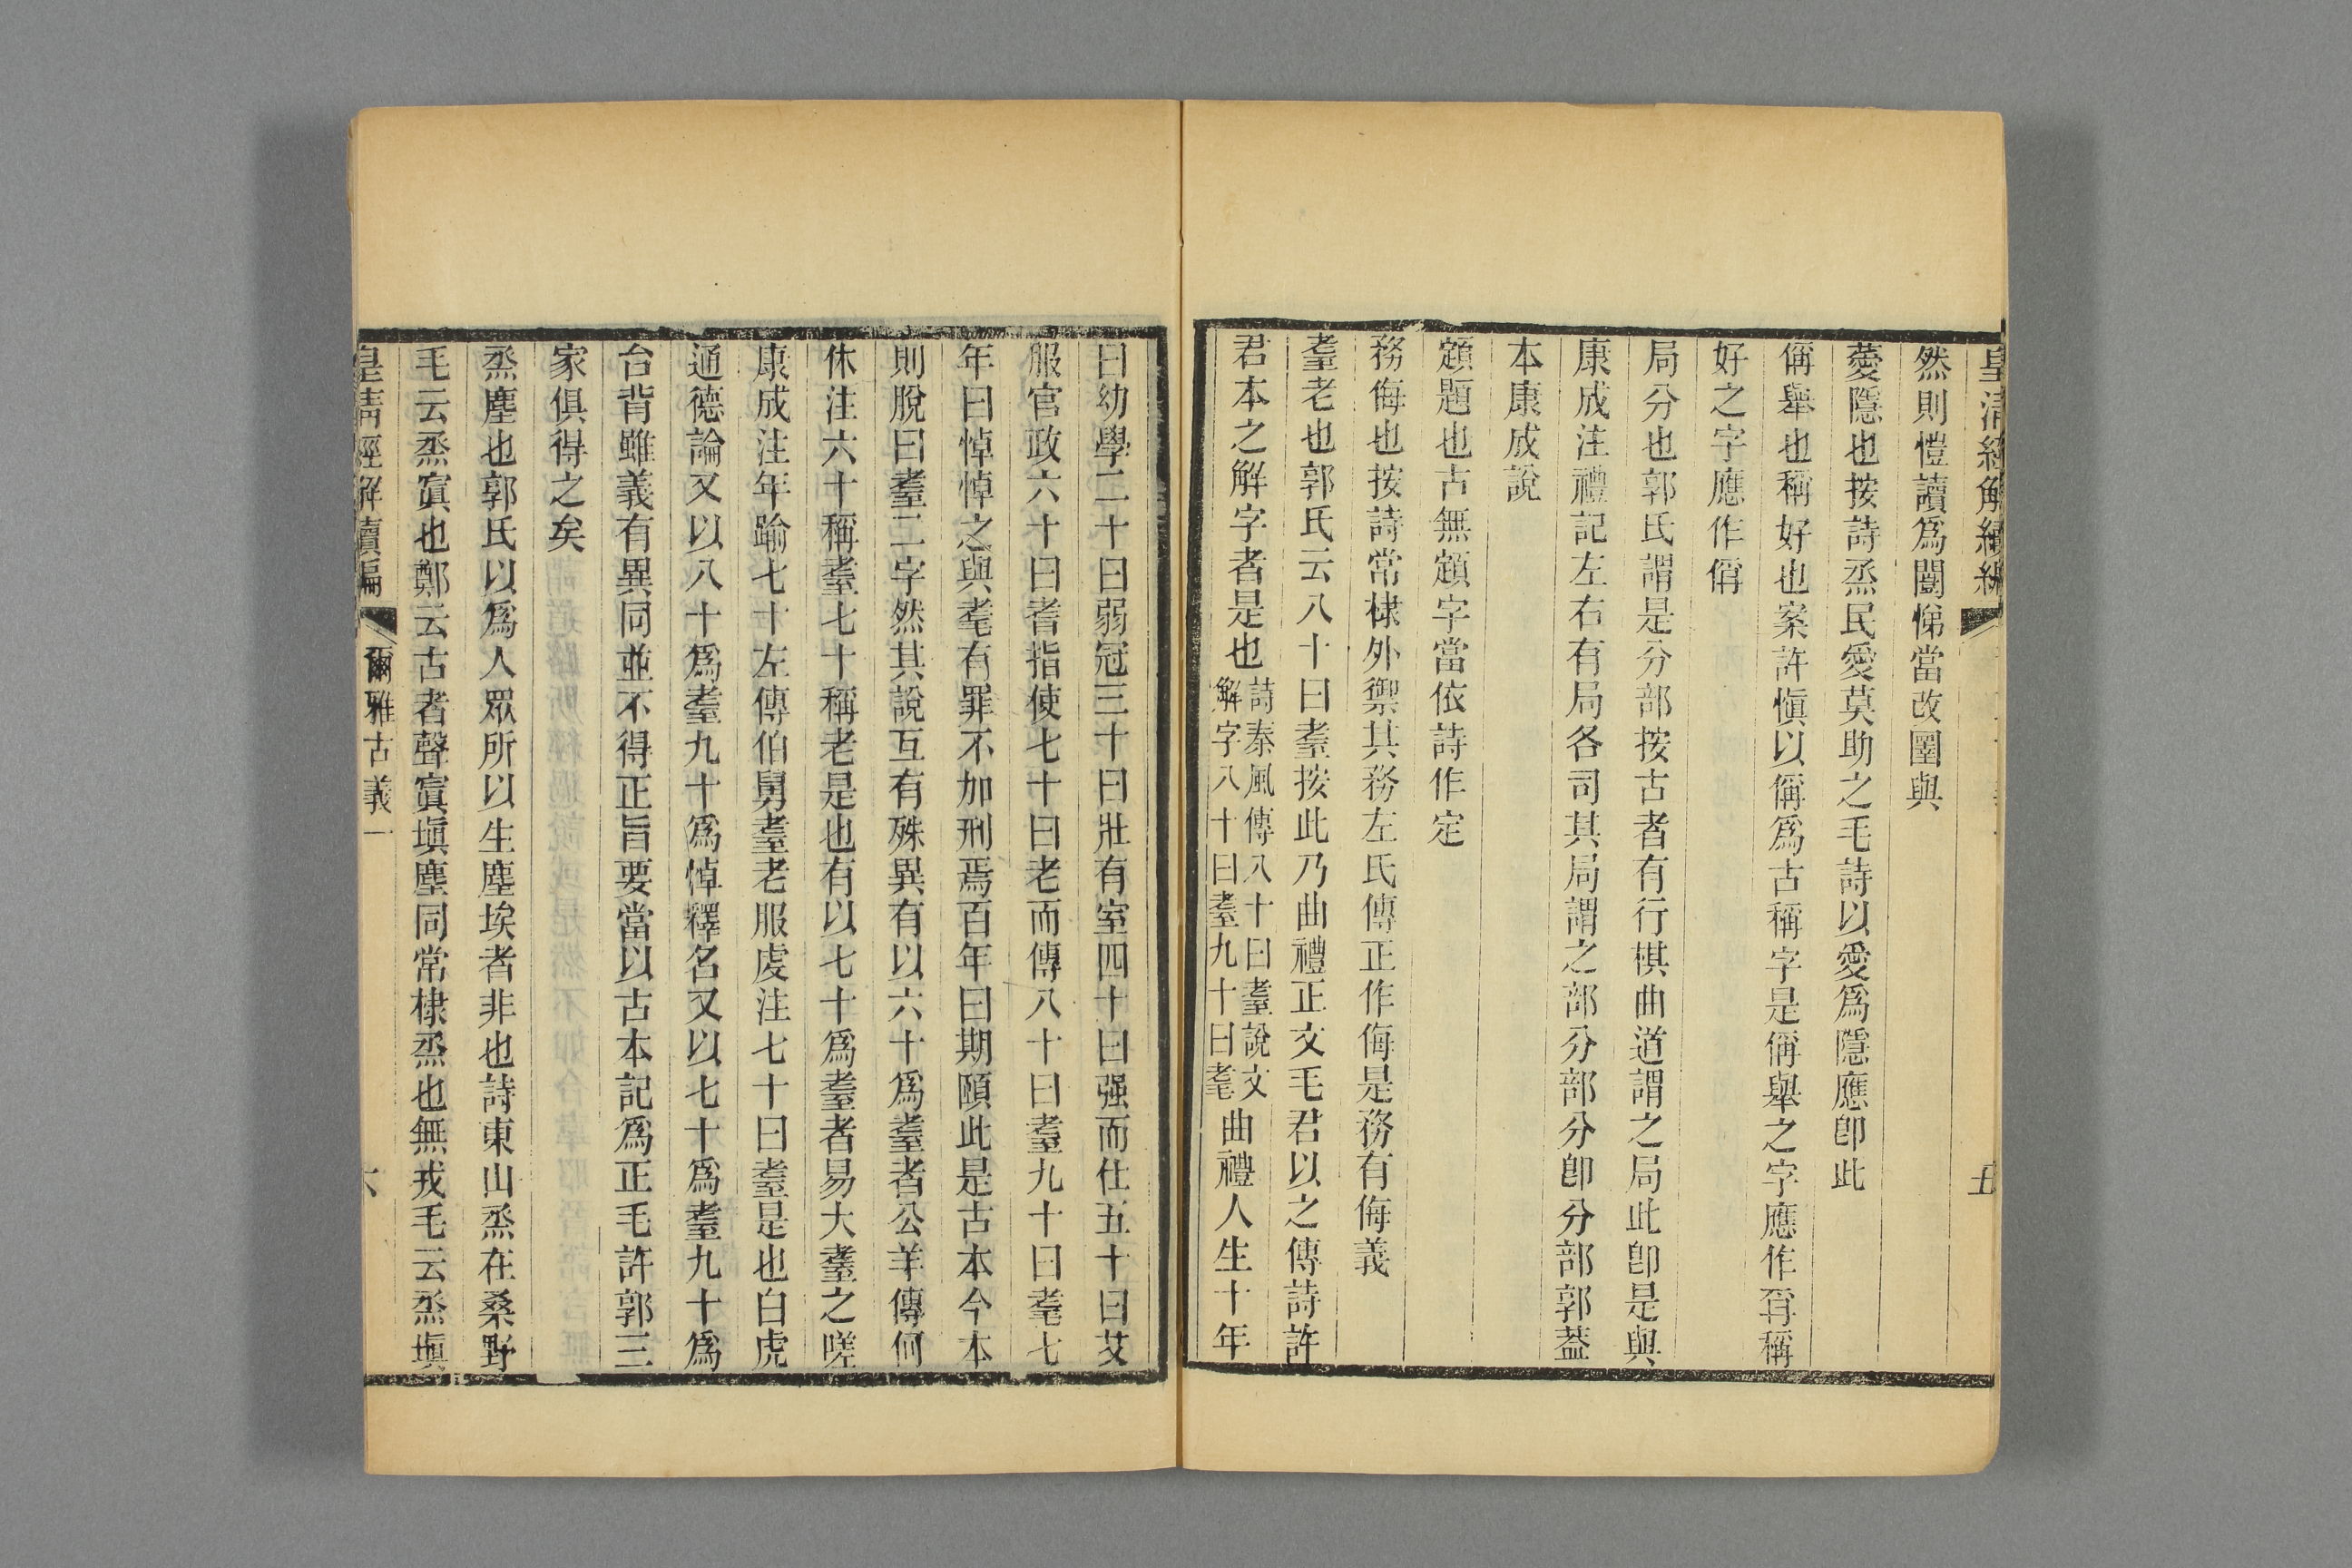 皇清經解續編
五
然則愷讀爲闓悌當改圛與
薆隱也按詩烝民愛莫助之毛詩以愛爲隱應卽此
偁舉也稱好也案許愼以偁爲古稱字是偁舉之字應作爯稱
好之字應作偁
局分也郭氏謂是分部按古者有行棋曲道謂之局此卽是與
康成注禮記左右有局各司其局謂之部分部分卽分部郭葢
本康成說
顁題也古無顁字當依詩作定
務侮也按詩常棣外禦其務左氏傳正作侮是務有侮義
耋老也郭氏云八十曰耋按此乃曲禮正文毛君以之傳詩許
君本之解字者是也
詩秦風傳八十曰耋說文
解字八十曰耋九十曰耄
曲禮人生十年
曰幼學二十曰弱冠三十曰壯有室四十曰强而仕五十曰艾
服官政六十曰耆指使七十曰老而傳八十曰耋九十曰耄七
年曰悼悼之與耄有罪不加刑焉百年曰期頤此是古本今本
則脫曰耋二字然其說互有殊異有以六十爲耋者公羊傳何
休注六十稱耋七十稱老是也有以七十爲耋者易大耋之嗟
康成注年踰七十左傳伯舅耋老服虔注七十曰耋是也白虎
通德論又以八十爲耋九十爲悼釋名又以七十爲耋九十爲
台背雖義有異同並不得正旨要當以古本記爲正毛許郭三
家俱得之矣
烝塵也郭氏以爲人眾所以生塵埃者非也詩東山烝在桑野
毛云烝寘也鄭云古者聲寘塡塵同常棣烝也無戎毛云烝塡
皇清經解續編
爾雅古義一
六